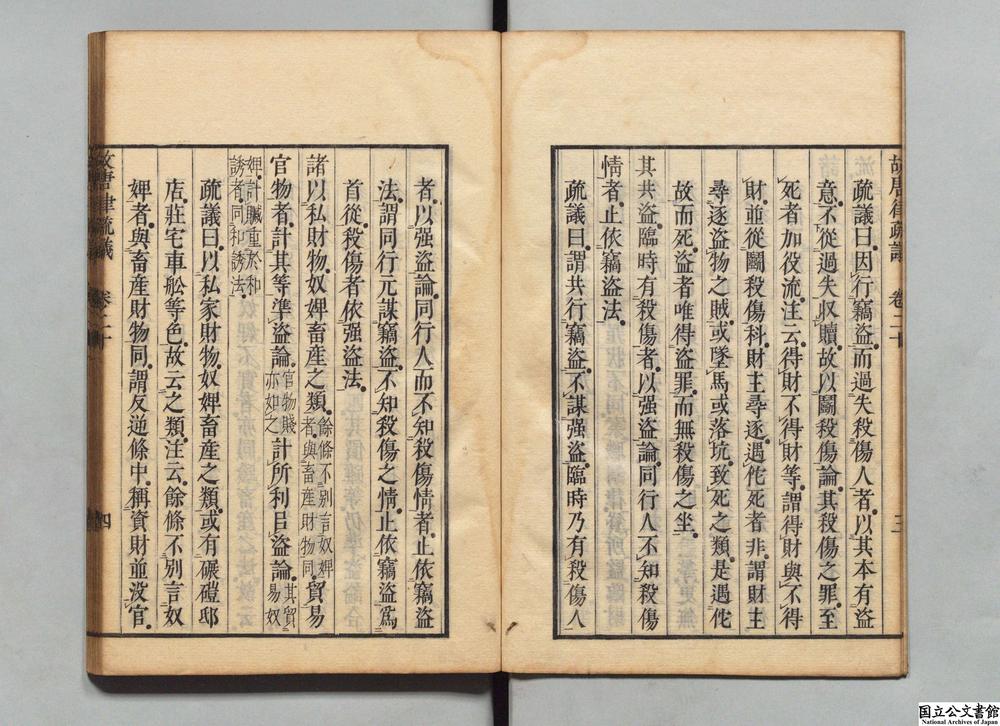 故唐律疏議 卷二十 三
疏議曰因行竊盜而過失殺傷人者以其本有盜
意不從過失収贖故以鬭殺傷論其殺傷之罪至
死者加役流注云得財不得財等謂得財與不得
財並從鬭殺傷科財主尋逐遇佗死者非謂財主
尋逐盜物之賊或墜馬或落坑致死之類是遇佗
故而死盜者唯得盜罪而無殺傷之坐
其共盜臨時有殺傷者以强盜論同行人不知殺傷
情者止依竊盜法
疏議曰謂共行竊盜不謀强盜臨時乃有殺傷人
者以强盜論同行人而不知殺傷情者止依竊盜
法謂同行元謀竊盜不知殺傷之情止依竊盜爲
首從殺傷者依强盜法
諸以私財物奴婢畜産之類餘條不别言奴婢者與畜産財物同貿易
官物者計其等準盜論官物賤亦如之計所利㠯盜論其貿易奴
婢計贓重於和誘者同和誘法
疏議曰以私家財物奴婢畜産之類或有碾磑邸
店莊宅車舩等色故云之類注云餘條不别言奴
婢者與畜産財物同謂反逆條中稱資財並没官
故唐律疏議 卷二十 四
国立公文書館
National Archives of Japan